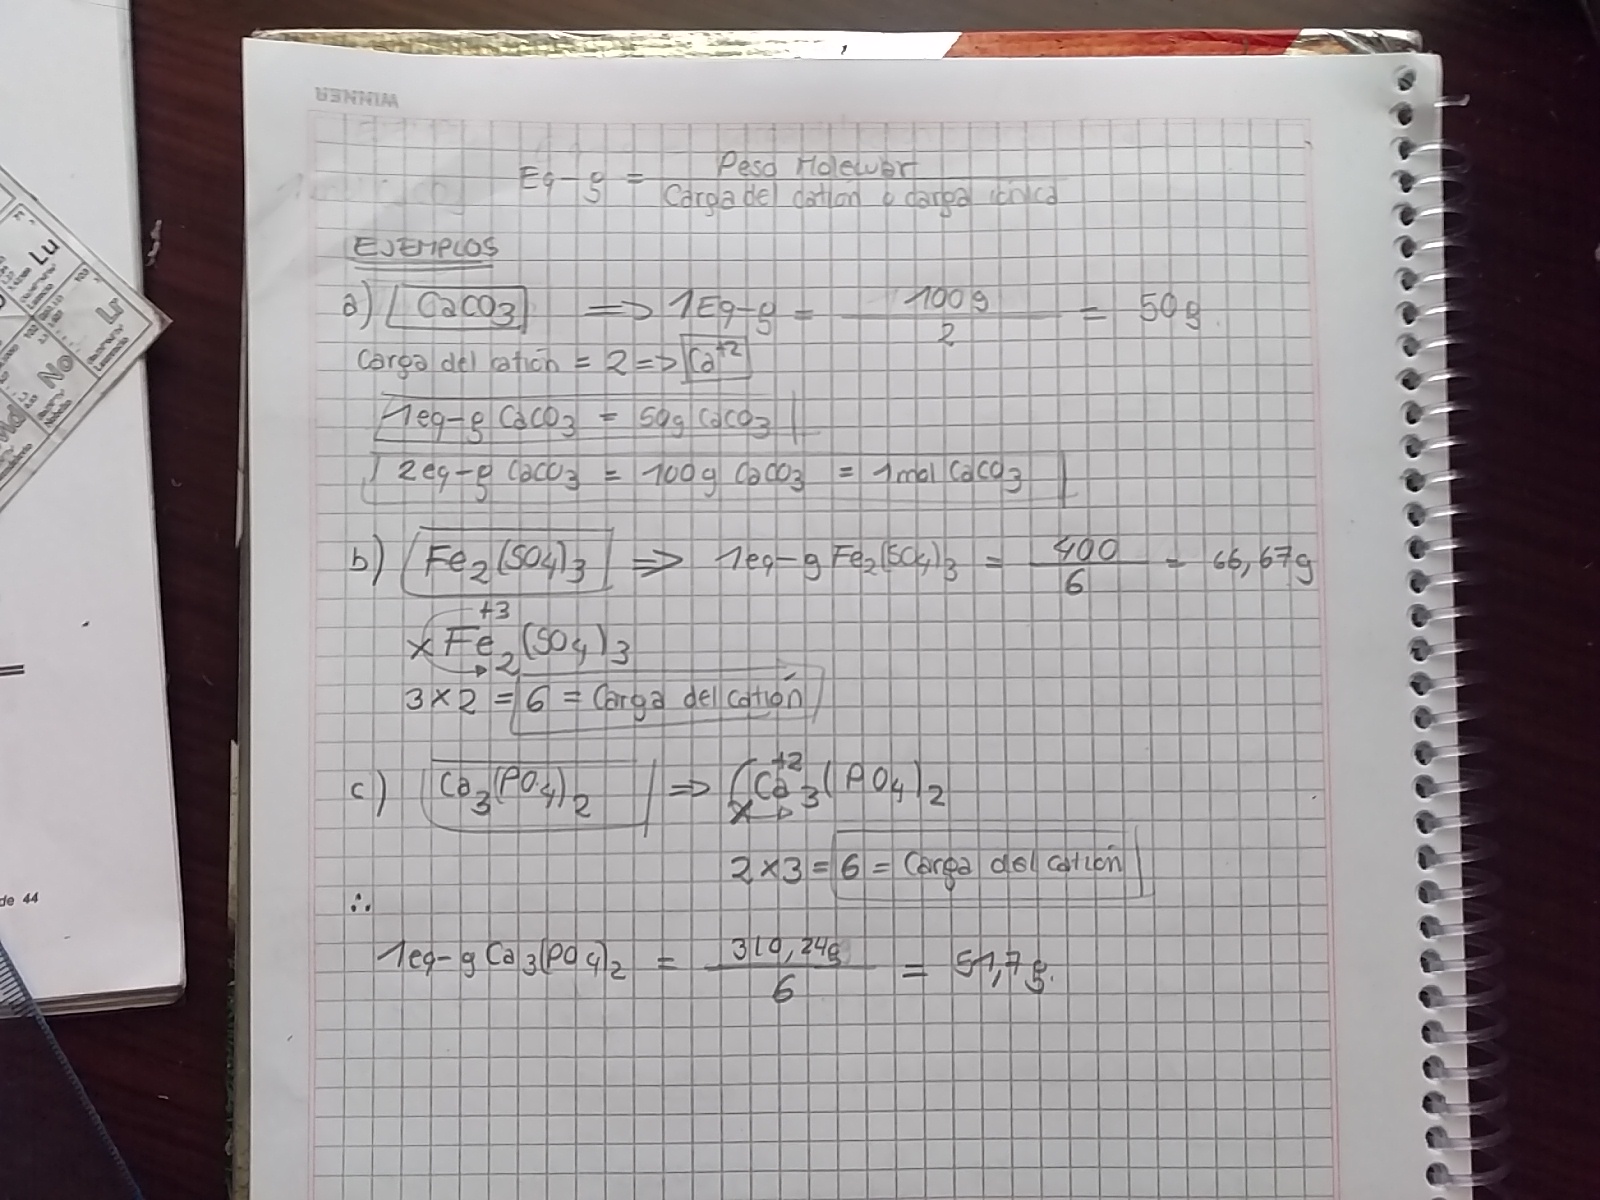 WINNER
Eq-g = Peso Molecular / Carga del catión o carga iónica
EJEMPLOS
a) CaCO3 => 1Eq-g = 100g / 2 = 50g.
Carga del catión = 2 => Ca+2
1eq-g CaCO3 = 50g CaCO3
2eq-g CaCO3 = 100g CaCO3 = 1mol CaCO3
b) Fe2(SO4)3 => 1eq-g Fe2(SO4)3 = 400 / 6 = 66,67g
+3
x Fe2(SO4)3
3x2 = 6 = Carga del catión
c) Ca3(PO4)2 => Ca+2 3(PO4)2
x
2x3 = 6 = Carga del catión
∴
1eq-g Ca3(PO4)2 = 310,24g / 6 = 51,7g.
Lu
Lr
No
Md
103
102
de 44